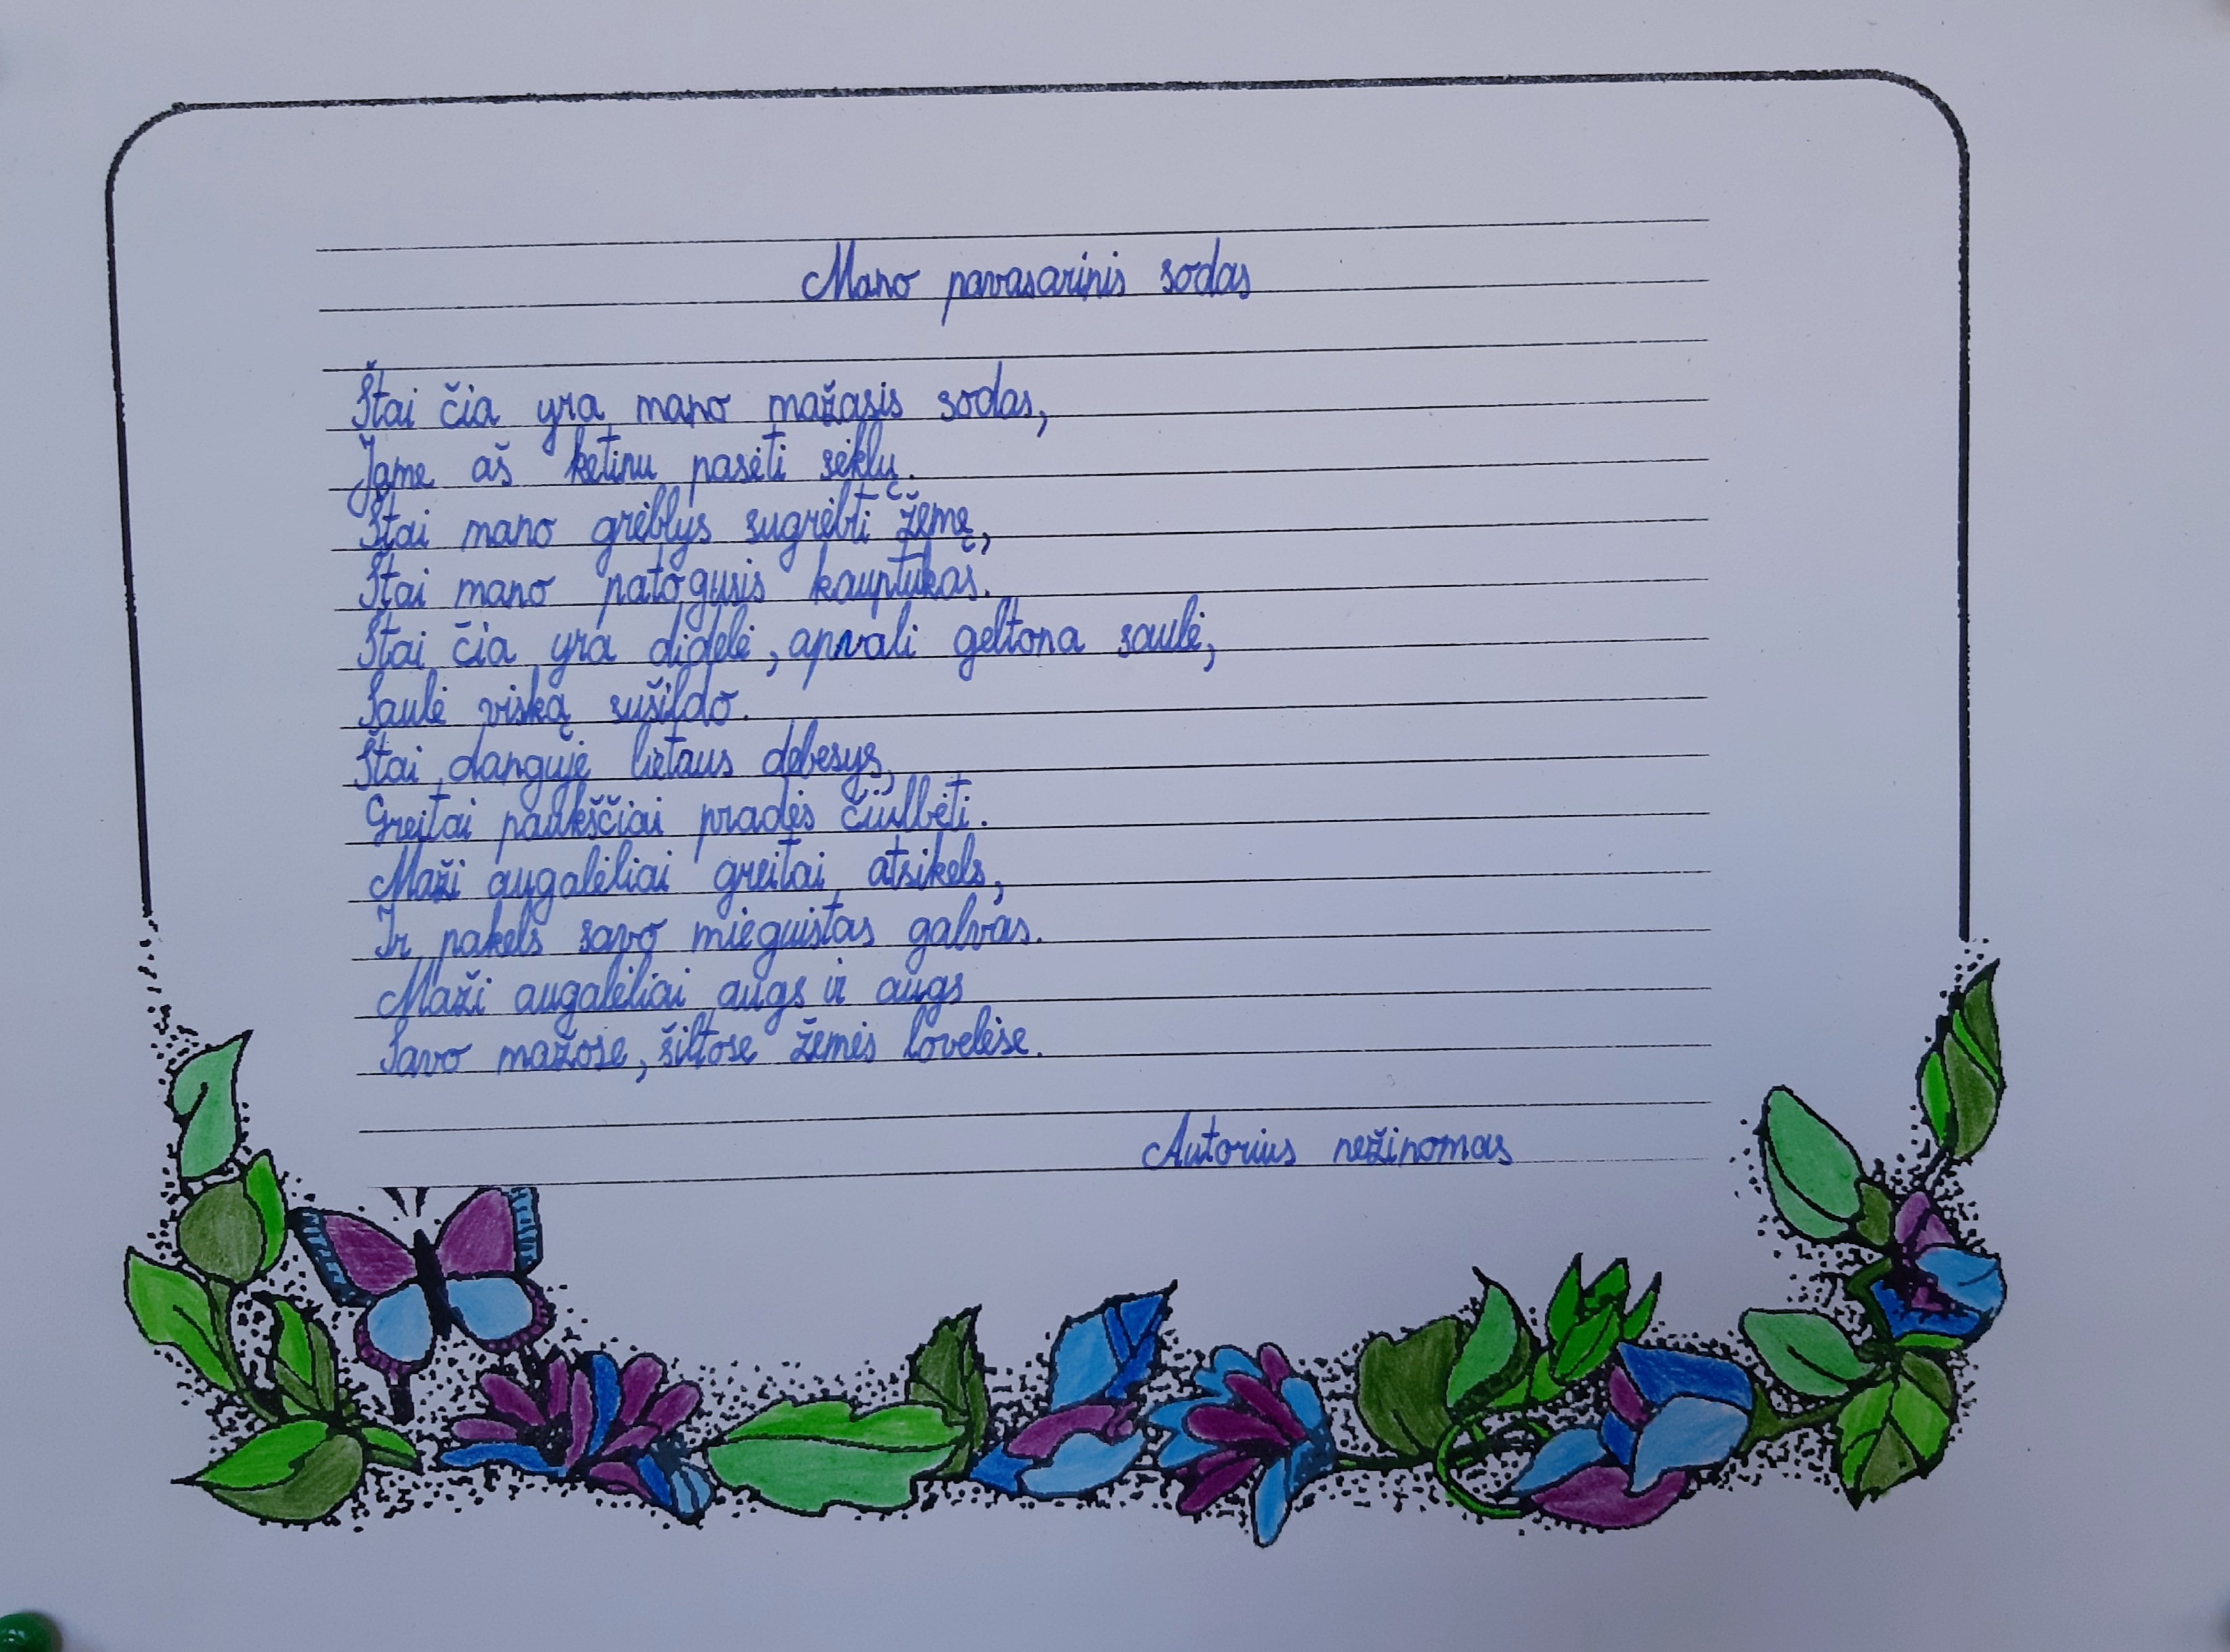 Mano pavasarinis sodas
Štai čia yra mano mažasis sodas,
Jame aš ketinu pasėti sėklų.
Štai mano grėblys sugrėbti žemę,
Štai mano patogusis kauptukas.
Štai čia yra didelė, apvali geltona saulė,
Saulė viską sušildo.
Štai danguje lietaus debesys,
Greitai paukščiai pradės čiulbėti.
Maži augalėliai greitai atsikels,
Ir pakels savo mieguistas galvas.
Maži augalėliai augs ir augs
Savo mažose, šiltose žemės lovelėse.
Autorius nežinomas